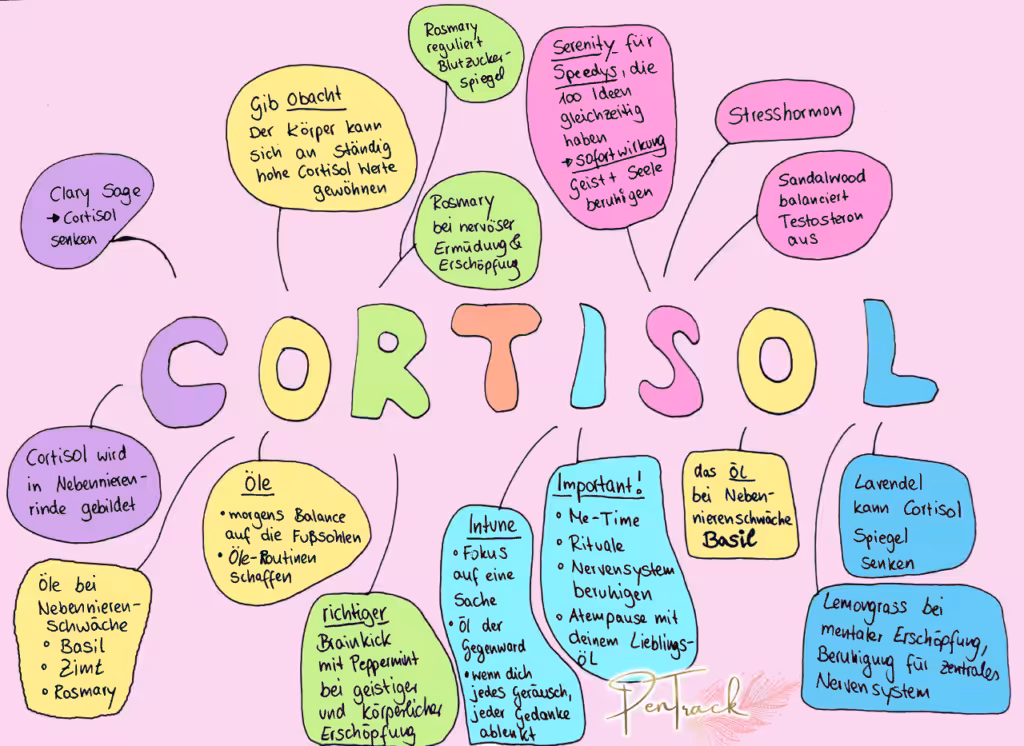 Rosmary
reguliert
Blutzucker-
spiegel
Serenity für
Speedys, die
100 Ideen
gleichzeitig
haben
→ sofortwirkung
Geist + Seele
beruhigen
Gib Obacht
Der Körper kann
sich an ständig
hohe Cortisol Werte
gewöhnen
Stresshormon
Clary Sage
→ Cortisol
senken
Rosmary
bei nervöser
Ermüdung &
Erschöpfung
Sandalwood
balanciert
Testosteron
aus
CORTISOL
Cortisol wird
in Nebennieren-
rinde gebildet
Öle
• morgens Balance
auf die Fußsohlen
• Öle-Routinen
schaffen
Important!
° Me-Time
° Rituale
° Nervensystem
beruhigen
° Atempause mit
deinem Lieblings-
ÖL
das ÖL
bei Neben-
nierenschwäche
Basil
Lavendel
kann Cortisol
Spiegel
senken
Intune
° Fokus
auf eine
Sache
• Öl der
Gegenward
• wenn dich
jedes Geräusch,
jeder Gedanke
ablenkt
Öle bei
Nebennieren-
schwäche
° Basil
° Zimt
° Rosmary
richtiger
Brainkick
mit Peppermint
bei geistiger
und körperlicher
Erschöpfung
Lemongrass bei
mentaler Erschöpfung,
Beruhigung für zentrales
Nervensystem
PenTrack